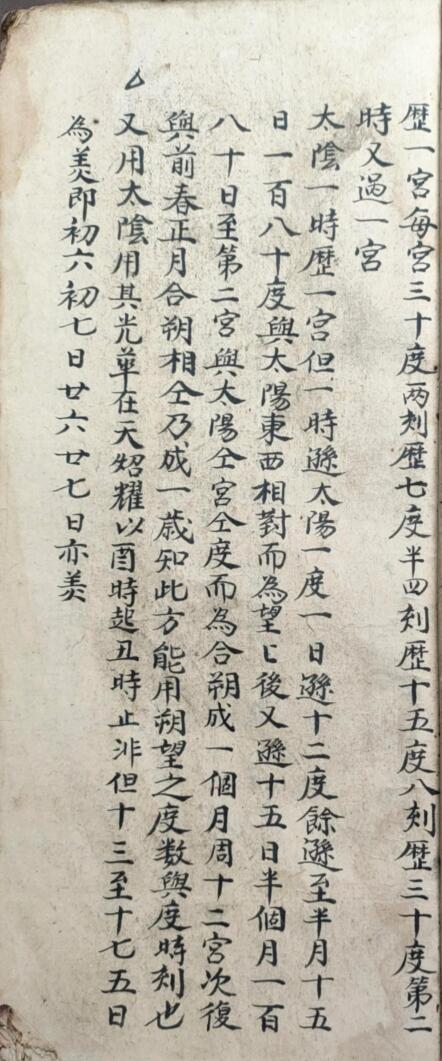 歴一宮每宮三十度两刻歴七度半四刻歴十五度八刻歴三十度第二
時又過一宮
太陰一時歴一宮但一時遜太陽一度一日遜十二度餘遜至半月十五
日一百八十度與太陽東西相對而為望〻後又遜十五日半個月一百
八十日至第二宮與太陽仝宮仝度而為合朔成一個月周十二宮次復
與前春正月合朔相仝乃成一歳知此方能用朔望之度数與度時刻也
又用太陰用其光華在天炤耀以酉時起丑時止非但十三至十七五日
為美即初六初七日廿六廿七日亦美